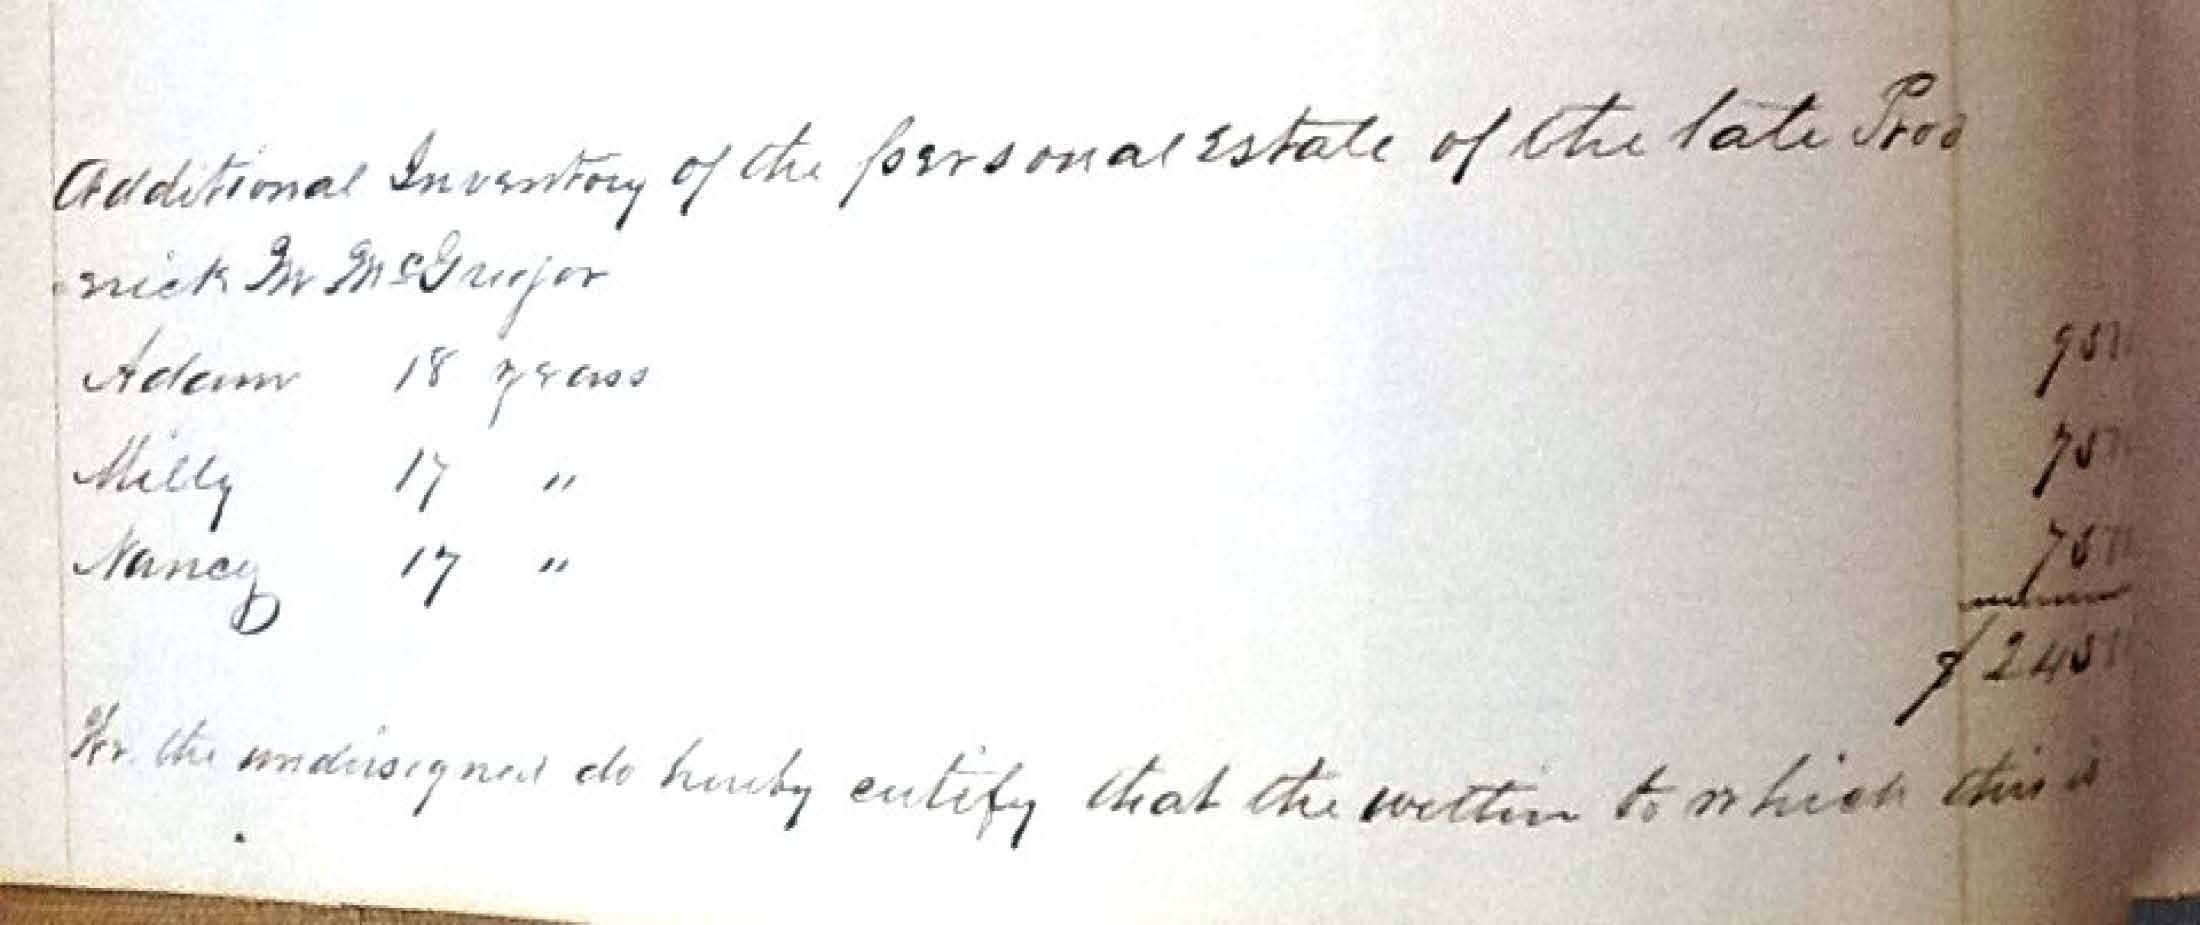 Additional Inventory of the personal Estate of the late Rod
erick M McGregor
Adam 18 years 950
Milly 17 " 750
Nancy 17 " 750
$2450
We the undersigned do hereby certify that the within to which this is